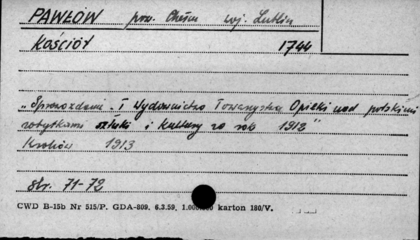 PAWŁÓW pow. Chełm woj. Lublin
Kościół 1744
"Sprawozdanie i Wydawnictwo Towarzystwa Opieki nad polskimi
zabytkami sztuki i kultury za rok 1912"
Kraków 1913
str. 71-72
CWD B-15b Nr 515/P. GDA-809. 6.3.59. karton 180/V.